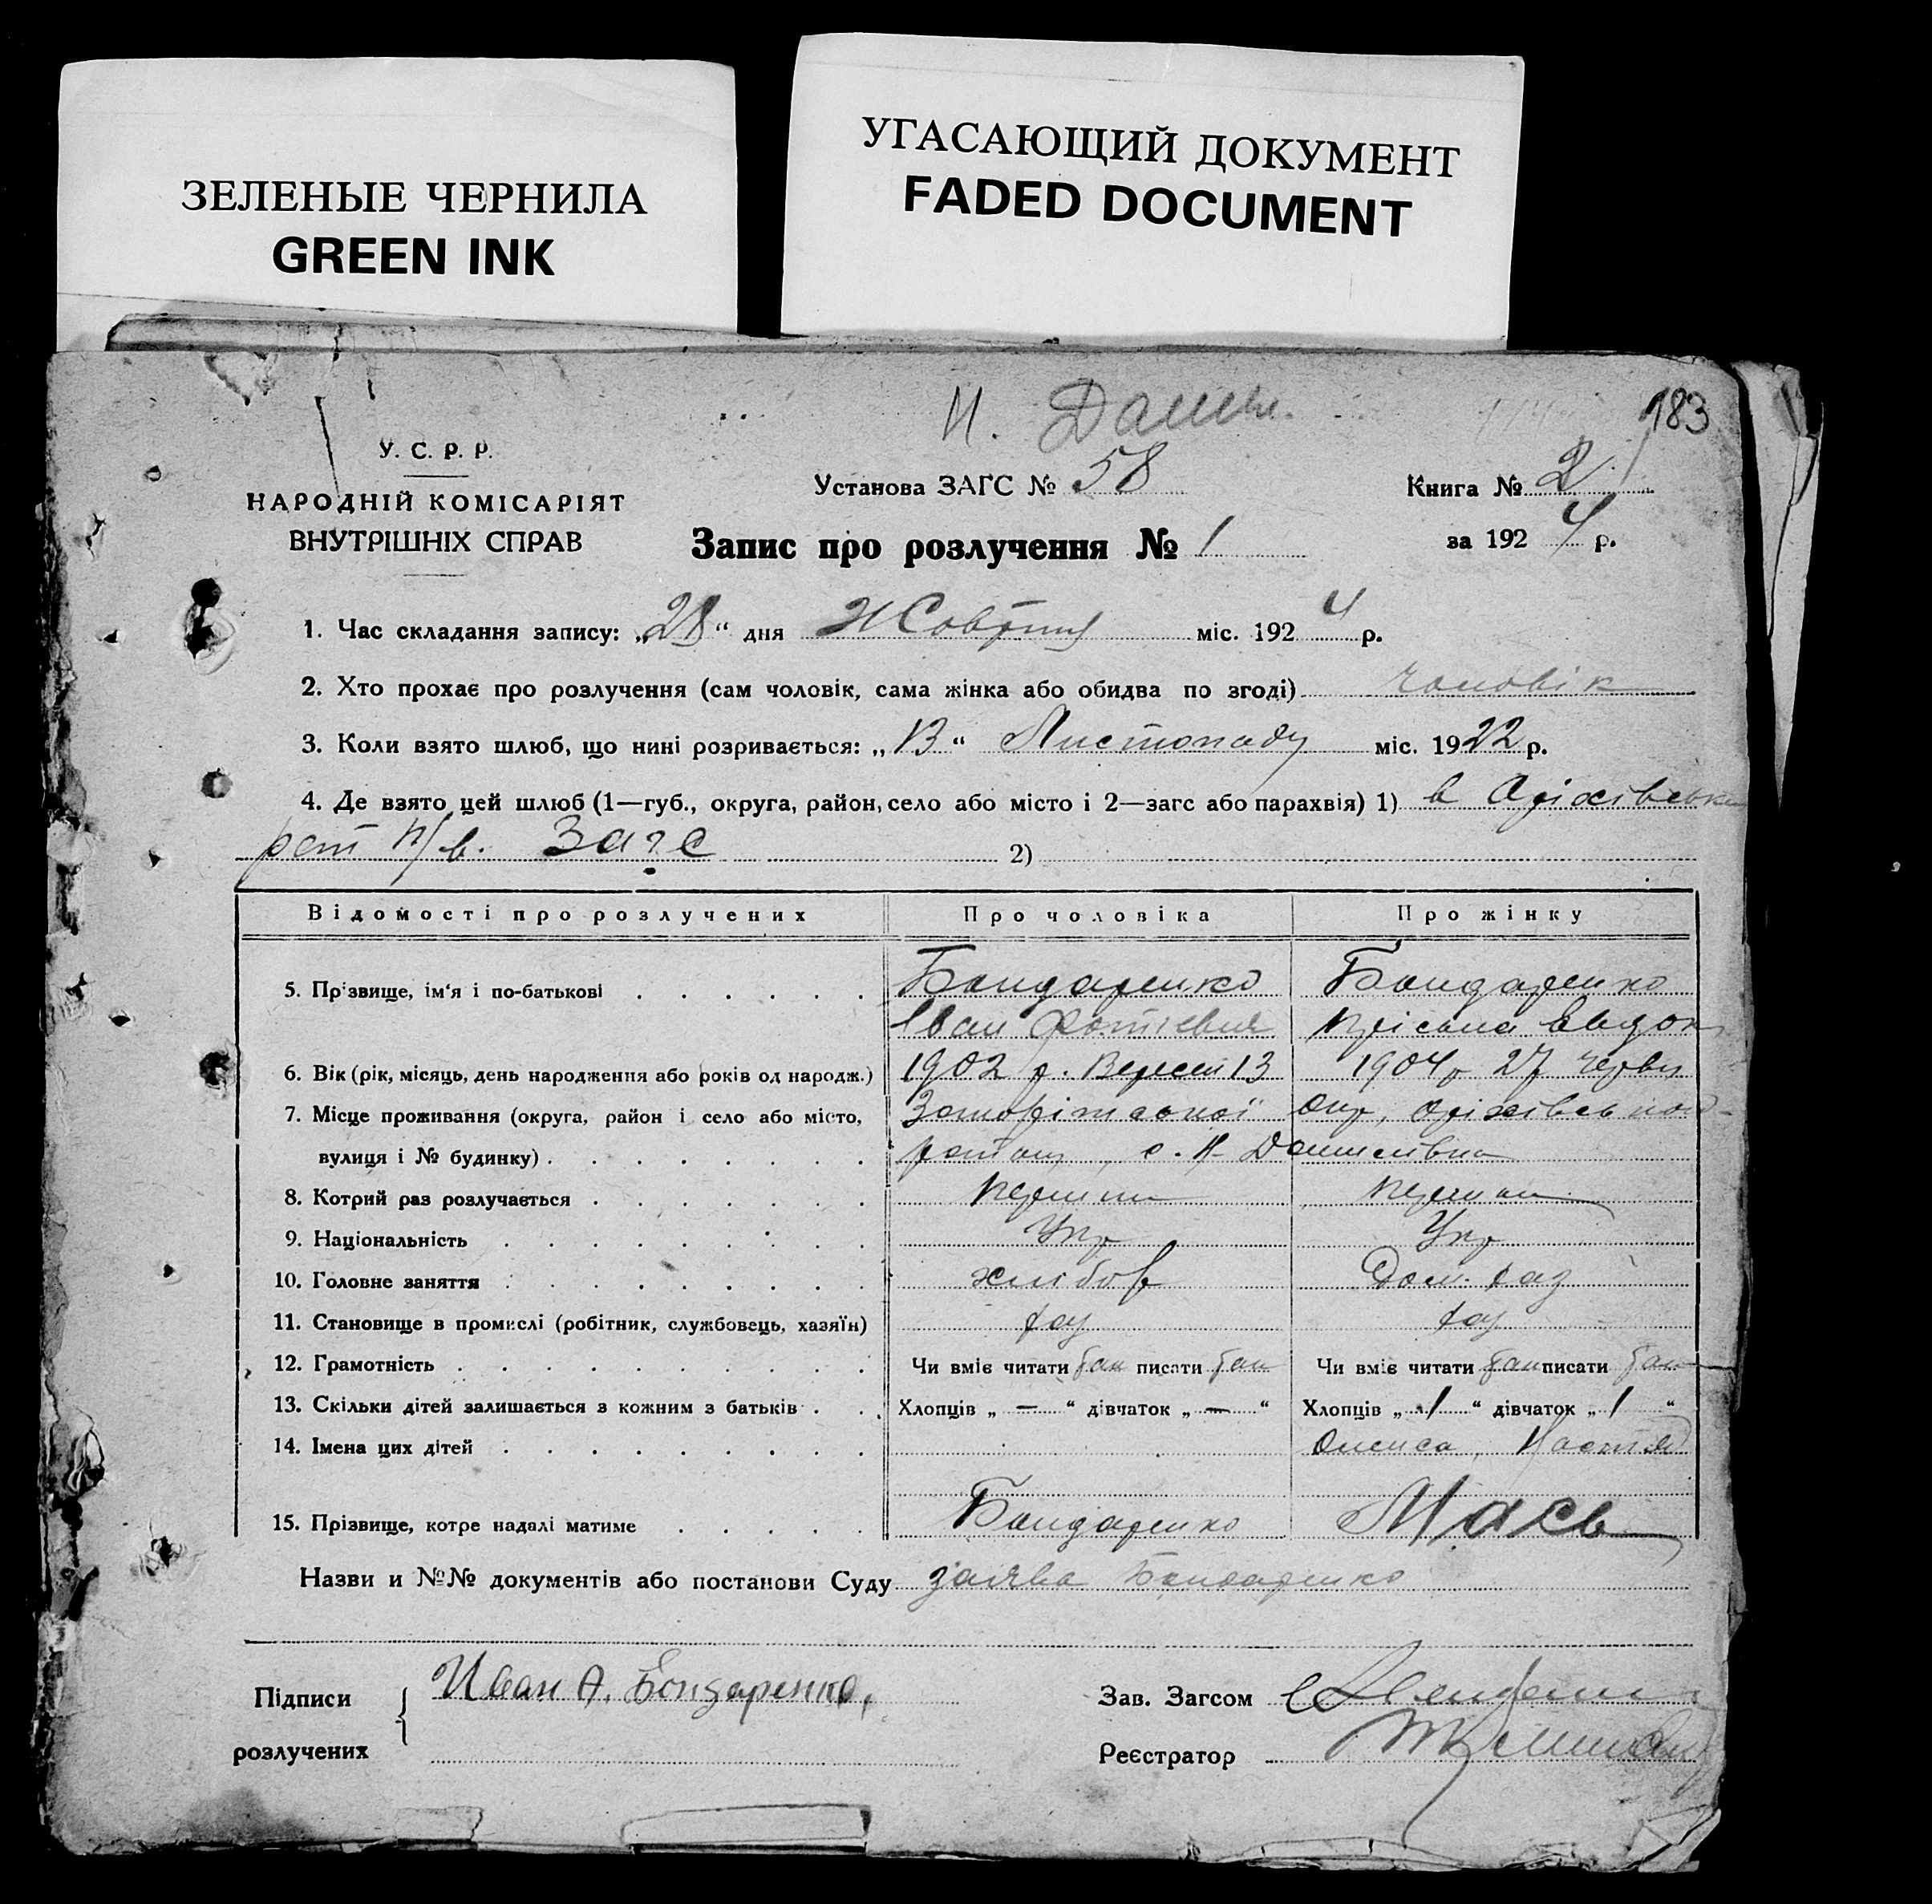 ЗЕЛЕНЫЕ ЧЕРНИЛА
GREEN INK
УГАСАЮЩИЙ ДОКУМЕНТ
FADED DOCUMENT
Н. Данил.
183
У. С. Р. Р.
НАРОДНІЙ КОМІСАРІЯТ
ВНУТРІШНІХ СПРАВ
Установа ЗАГС № 58
Книга № 2
за 1924 р.
Запис про розлучення № 1
1. Час складання запису: „28“ дня Жовтня міс. 1924 р.
2. Хто прохає про розлучення (сам чоловік, сама жінка або обидва по згоді) чоловік
3. Коли взято шлюб, що нині розривається: „13“ Листопаду міс. 1922 р.
4. Де взято цей шлюб (1—губ., округа, район, село або місто і 2—загс або парахвія) 1) в Оріхівськ
Загс 2)
Відомості про розлучених Про чоловіка Про жінку
5. Прізвище, ім'я і по-батькові Бондаренко Бондаренко
Іван
6. Вік (рік, місяць, день народження або років од народж.) 1902 р. Вересн 13 1904 р 27 червн
7. Місце проживання (округа, район і село або місто, Запорізської окр, Оріхівськ
вулиця і № будинку) с. Н-Данилівка
8. Котрий раз розлучається перший перший
9. Національність Укр Укр
10. Головне заняття хлібор Дом. хаз
11. Становище в промислі (робітник, службовець, хазяїн) хаз хаз
12. Грамотність Чи вміє читати так писати так Чи вміє читати так писати так
13. Скільки дітей залишається з кожним з батьків Хлопців „—“ дівчаток „—“ Хлопців „1“ дівчаток „1“
14. Імена цих дітей Настя
15. Прізвище, котре надалі матиме Бондаренко Мась
Назви и №№ документів або постанови Суду заява Бондаренко
Підписи
розлучених
Иван Ф. Бондаренко,
Зав. Загсом
Реєстратор